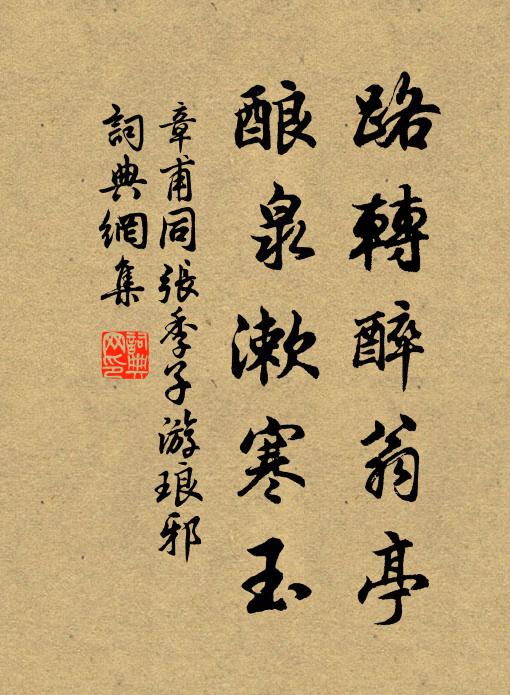 路轉醉翁亭
酿泉漱寒玉
章甫同張季子游琅邪
詞典網集
詞典网印